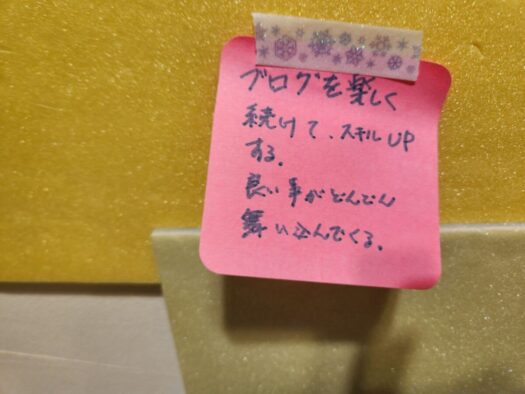 ブログを楽しく
続けて、スキルUP
する。
良い事がどんどん
舞い込んでくる。